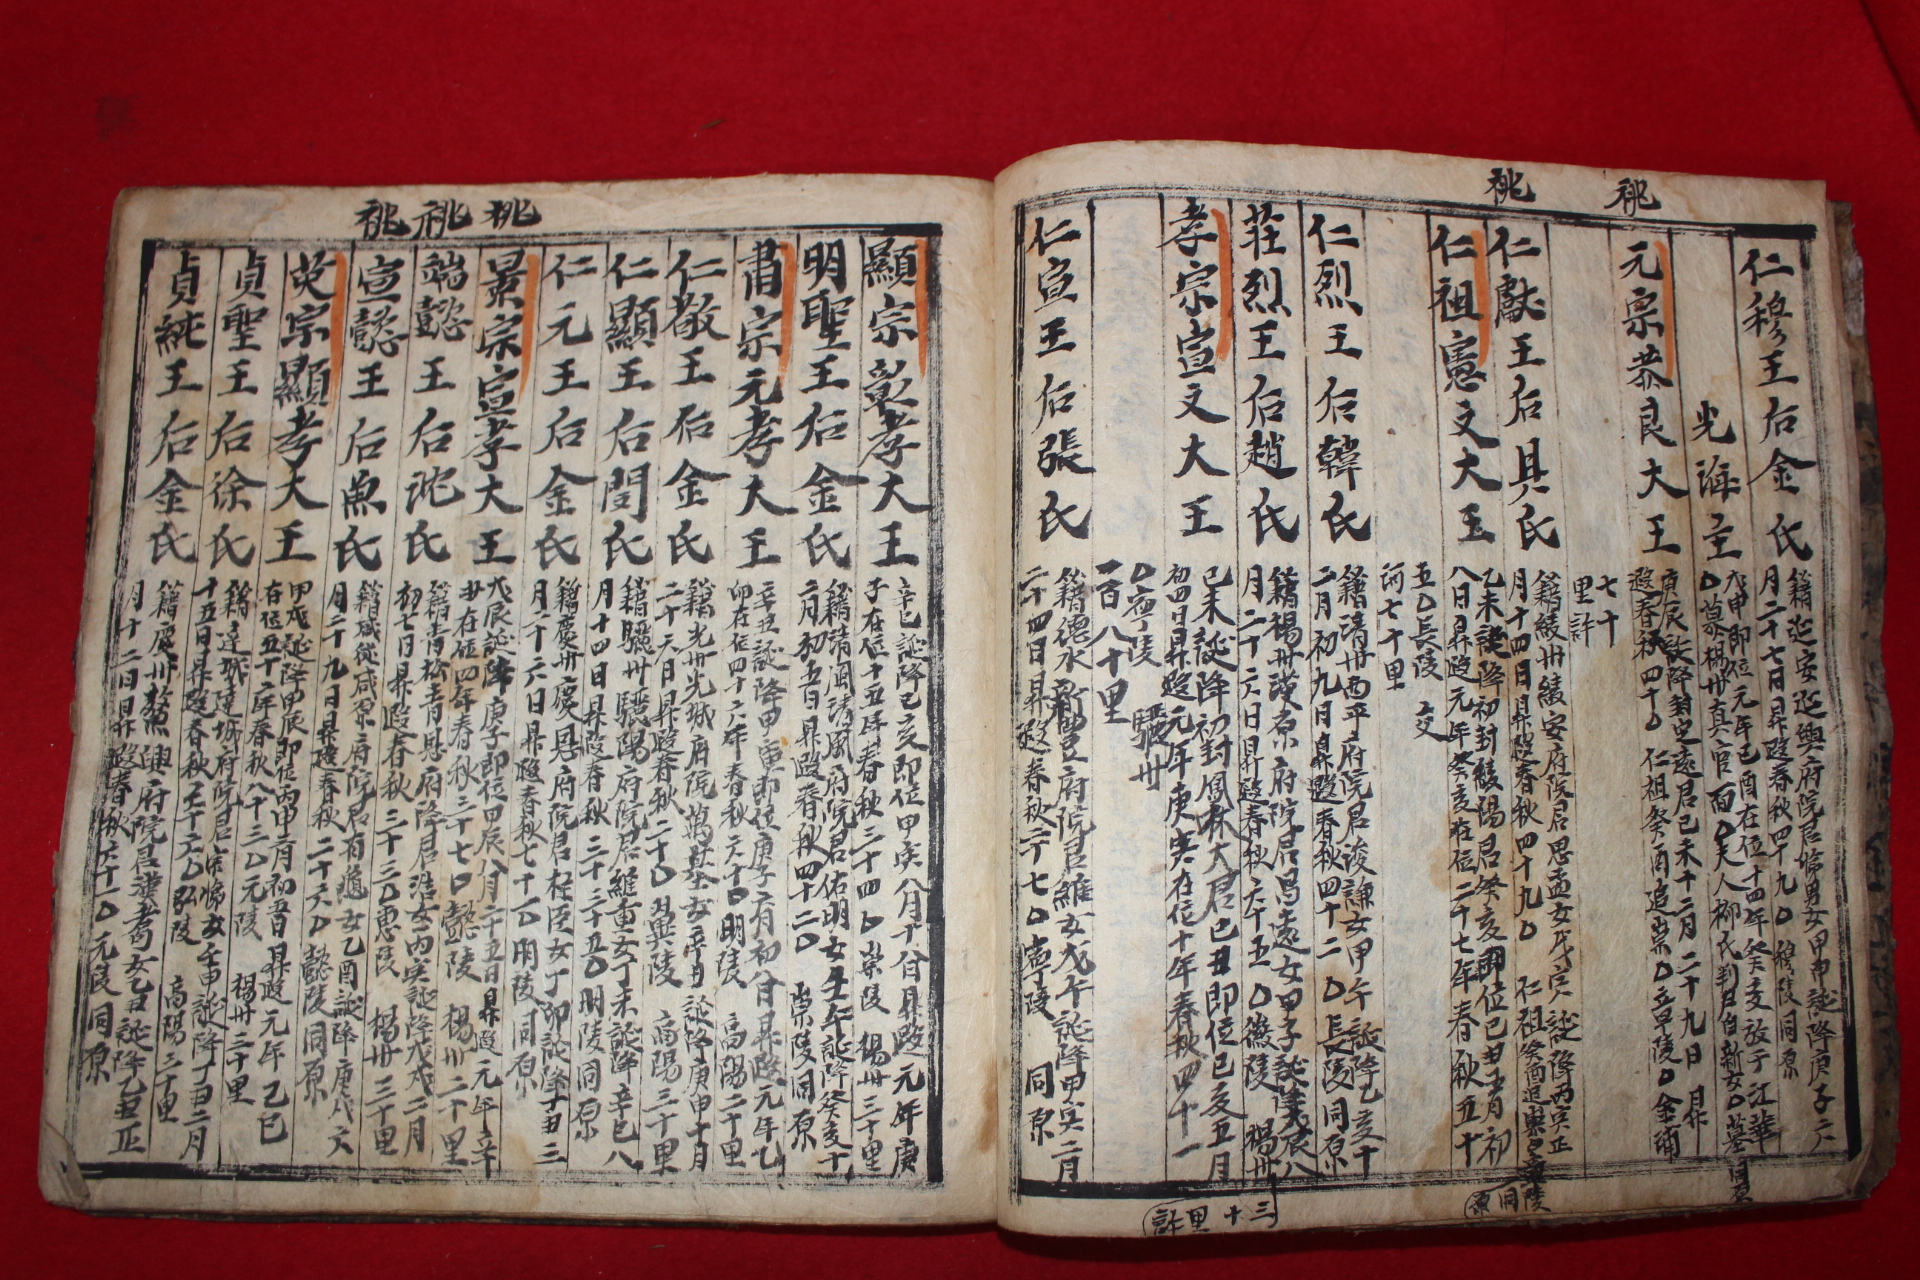 祧
祧
仁穆王后金氏
籍延安延興府院君悌男女甲申誕降庚子六
月二十七日昇遐春秋四十九〇穆陵同原
光海主
戊申即位元年己酉在位十四年癸亥放于江華
〇墓楊州真官面〇夫人柳氏判尹自新女〇墓同原
元宗恭良大王
庚辰誕降封定遠君己未十二月二十九日昇
遐春秋四十〇仁祖癸酉追崇〇章陵〇金浦
七十
里許
仁獻王后具氏
籍綾州綾安府院君思孟女戊寅誕降丙寅正
月十四日昇遐春秋四十九〇仁祖癸酉追崇〇章陵
同原
仁祖憲文大王
乙未誕降初封綾陽君癸亥即位己丑五月初
八日昇遐元年癸亥在位二十七年春秋五十
五〇長陵 交
河七十里
仁烈王后韓氏
籍清州西平府院君浚謙女甲午誕降乙亥十
二月初九日昇遐春秋四十二〇長陵同原
莊烈王后趙氏
籍楊州漢原府院君昌遠女甲子誕降戊辰八
月二十六日昇遐春秋六十五〇徽陵 楊州
三十里許
孝宗宣文大王
己未誕降初封鳳林大君己丑即位己亥五月
初四日昇遐元年庚寅在位十年春秋四十一
〇寧陵 驪州
一百八十里
仁宣王后張氏
籍德水新豐府院君維女戊午誕降甲寅二月
二十四日昇遐春秋五十七〇寧陵 同原
祧
祧
祧
顯宗彰孝大王
辛巳誕降己亥即位甲寅八月十八日昇遐元年庚
子在位十五年春秋三十四〇崇陵 楊州三十里
明聖王后金氏
籍清風清風府院君佑明女壬午誕降癸亥十
二月初五日昇遐春秋四十二〇崇陵同原
肅宗元孝大王
辛丑誕降甲寅即位庚子六月初八日昇遐元年乙
卯在位四十六年春秋六十〇明陵 高陽二十里
仁敬王后金氏
籍光州光城府院君萬基女辛丑誕降庚申十月
二十六日昇遐春秋二十〇翼陵 高陽三十里
仁顯王后閔氏
籍驪州驪陽府院君維重女丁未誕降辛巳八
月十四日昇遐春秋三十五〇明陵同原
仁元王后金氏
籍慶州慶恩府院君柱臣女丁卯誕降丁丑三
月二十六日昇遐春秋七十一〇明陵同原
景宗宣孝大王
戊辰誕降庚子即位甲辰八月二十五日昇遐元年辛
丑在位四年春秋三十七〇懿陵 楊州二十里
端懿王后沈氏
籍青松青恩府院君浩女丙寅誕降戊戌二月
初七日昇遐春秋三十三〇惠陵 楊州三十里
宣懿王后魚氏
籍咸從咸原府院君有龜女乙酉誕降庚戌六
月二十九日昇遐春秋二十六〇懿陵同原
英宗顯孝大王
甲戌誕降甲辰即位丙申三月初五日昇遐元年乙巳
在位五十二年春秋八十三〇元陵 楊州三十里
貞聖王后徐氏
籍達城達城府院君宗悌女壬申誕降丁丑二月
十五日昇遐春秋六十六〇弘陵 高陽三十里
貞純王后金氏
籍慶州鰲興府院君漢耉女乙丑誕降乙丑正
月十二日昇遐春秋六十一〇元陵同原